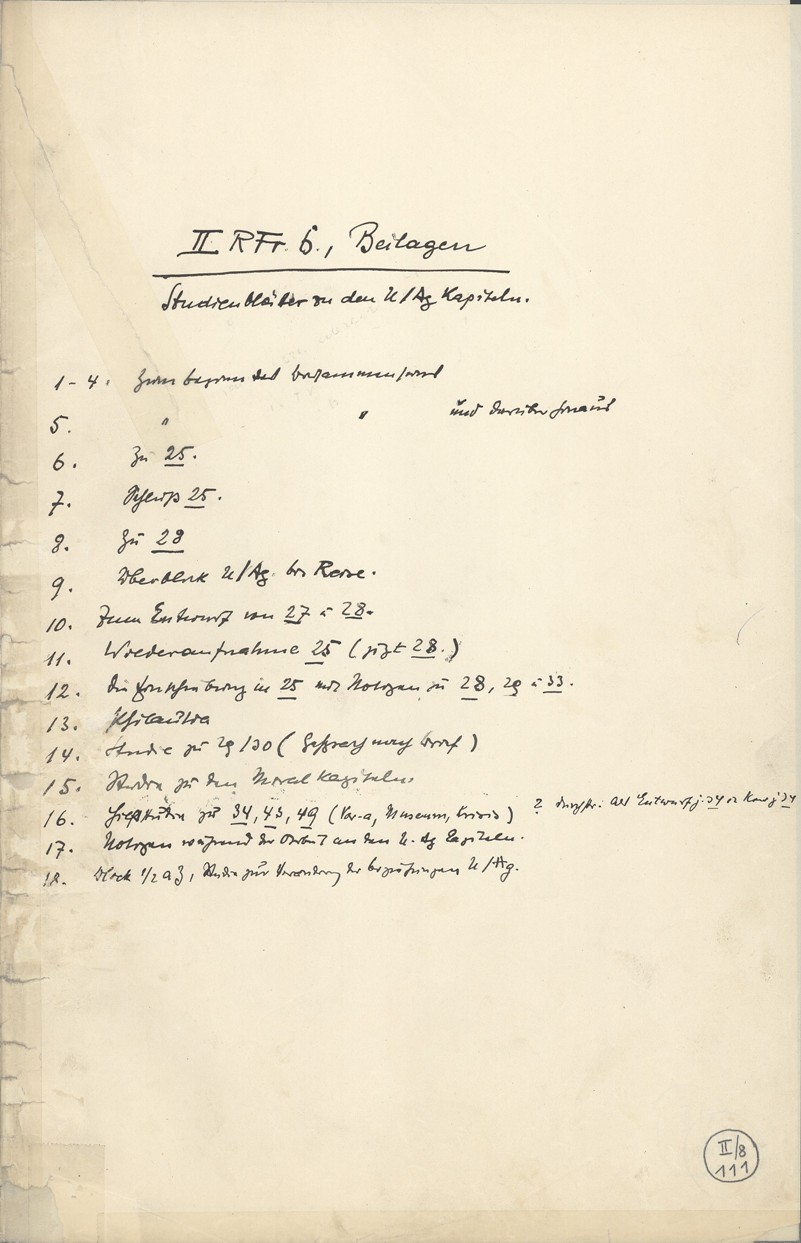 II RFr. 6., Beilagen
Studienblätter zu den U/Ag Kapiteln.
1-4. Zum beginn des beisammenseins
5. " " und darüber hinaus
6. Zu 25.
7. Schluß 25.
8. Zu 28
9. Überblick U/Ag. bis Reise.
10. Zum Entwurf von 27 u 28.
11. Wiederaufnahme 25 (jetzt 28.)
12. Die Fortschreibung in 25 mit Notizen zu 28, 29 u 33.
13. Philautia
14. Studie zu 29/30 (Gespräch nach)
15. Studien zu den Moral Kapiteln.
16. zu 34, 43, 49 (Museum, Krisis) ? als Entwurf z. 34
17. Notizen während der Arbeit an den U. Ag Kapiteln.
18. Block 1/2 a 3, Studie zur der beziehungen U/Ag.
II/8
111